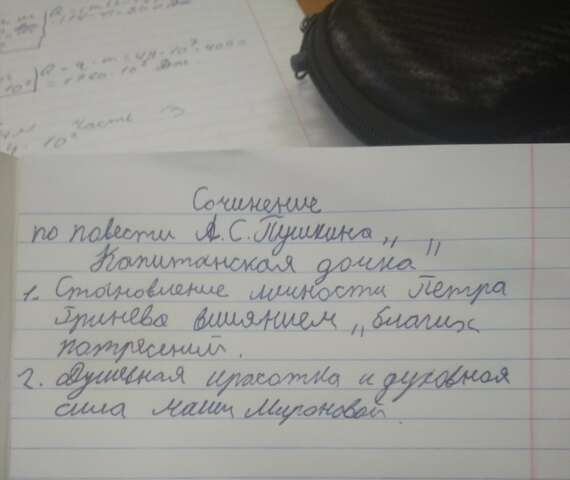 Q = q · m = 44 · 10⁶ · 40 =
часть 3
Сочинение
по повести А.С.Пушкина „ "
Капитанская дочка
1. Становление личности Петра
Гринёва влиянием „благих
потрясений.
2. Душевная красотка и духовная
сила Маши Мироновой.